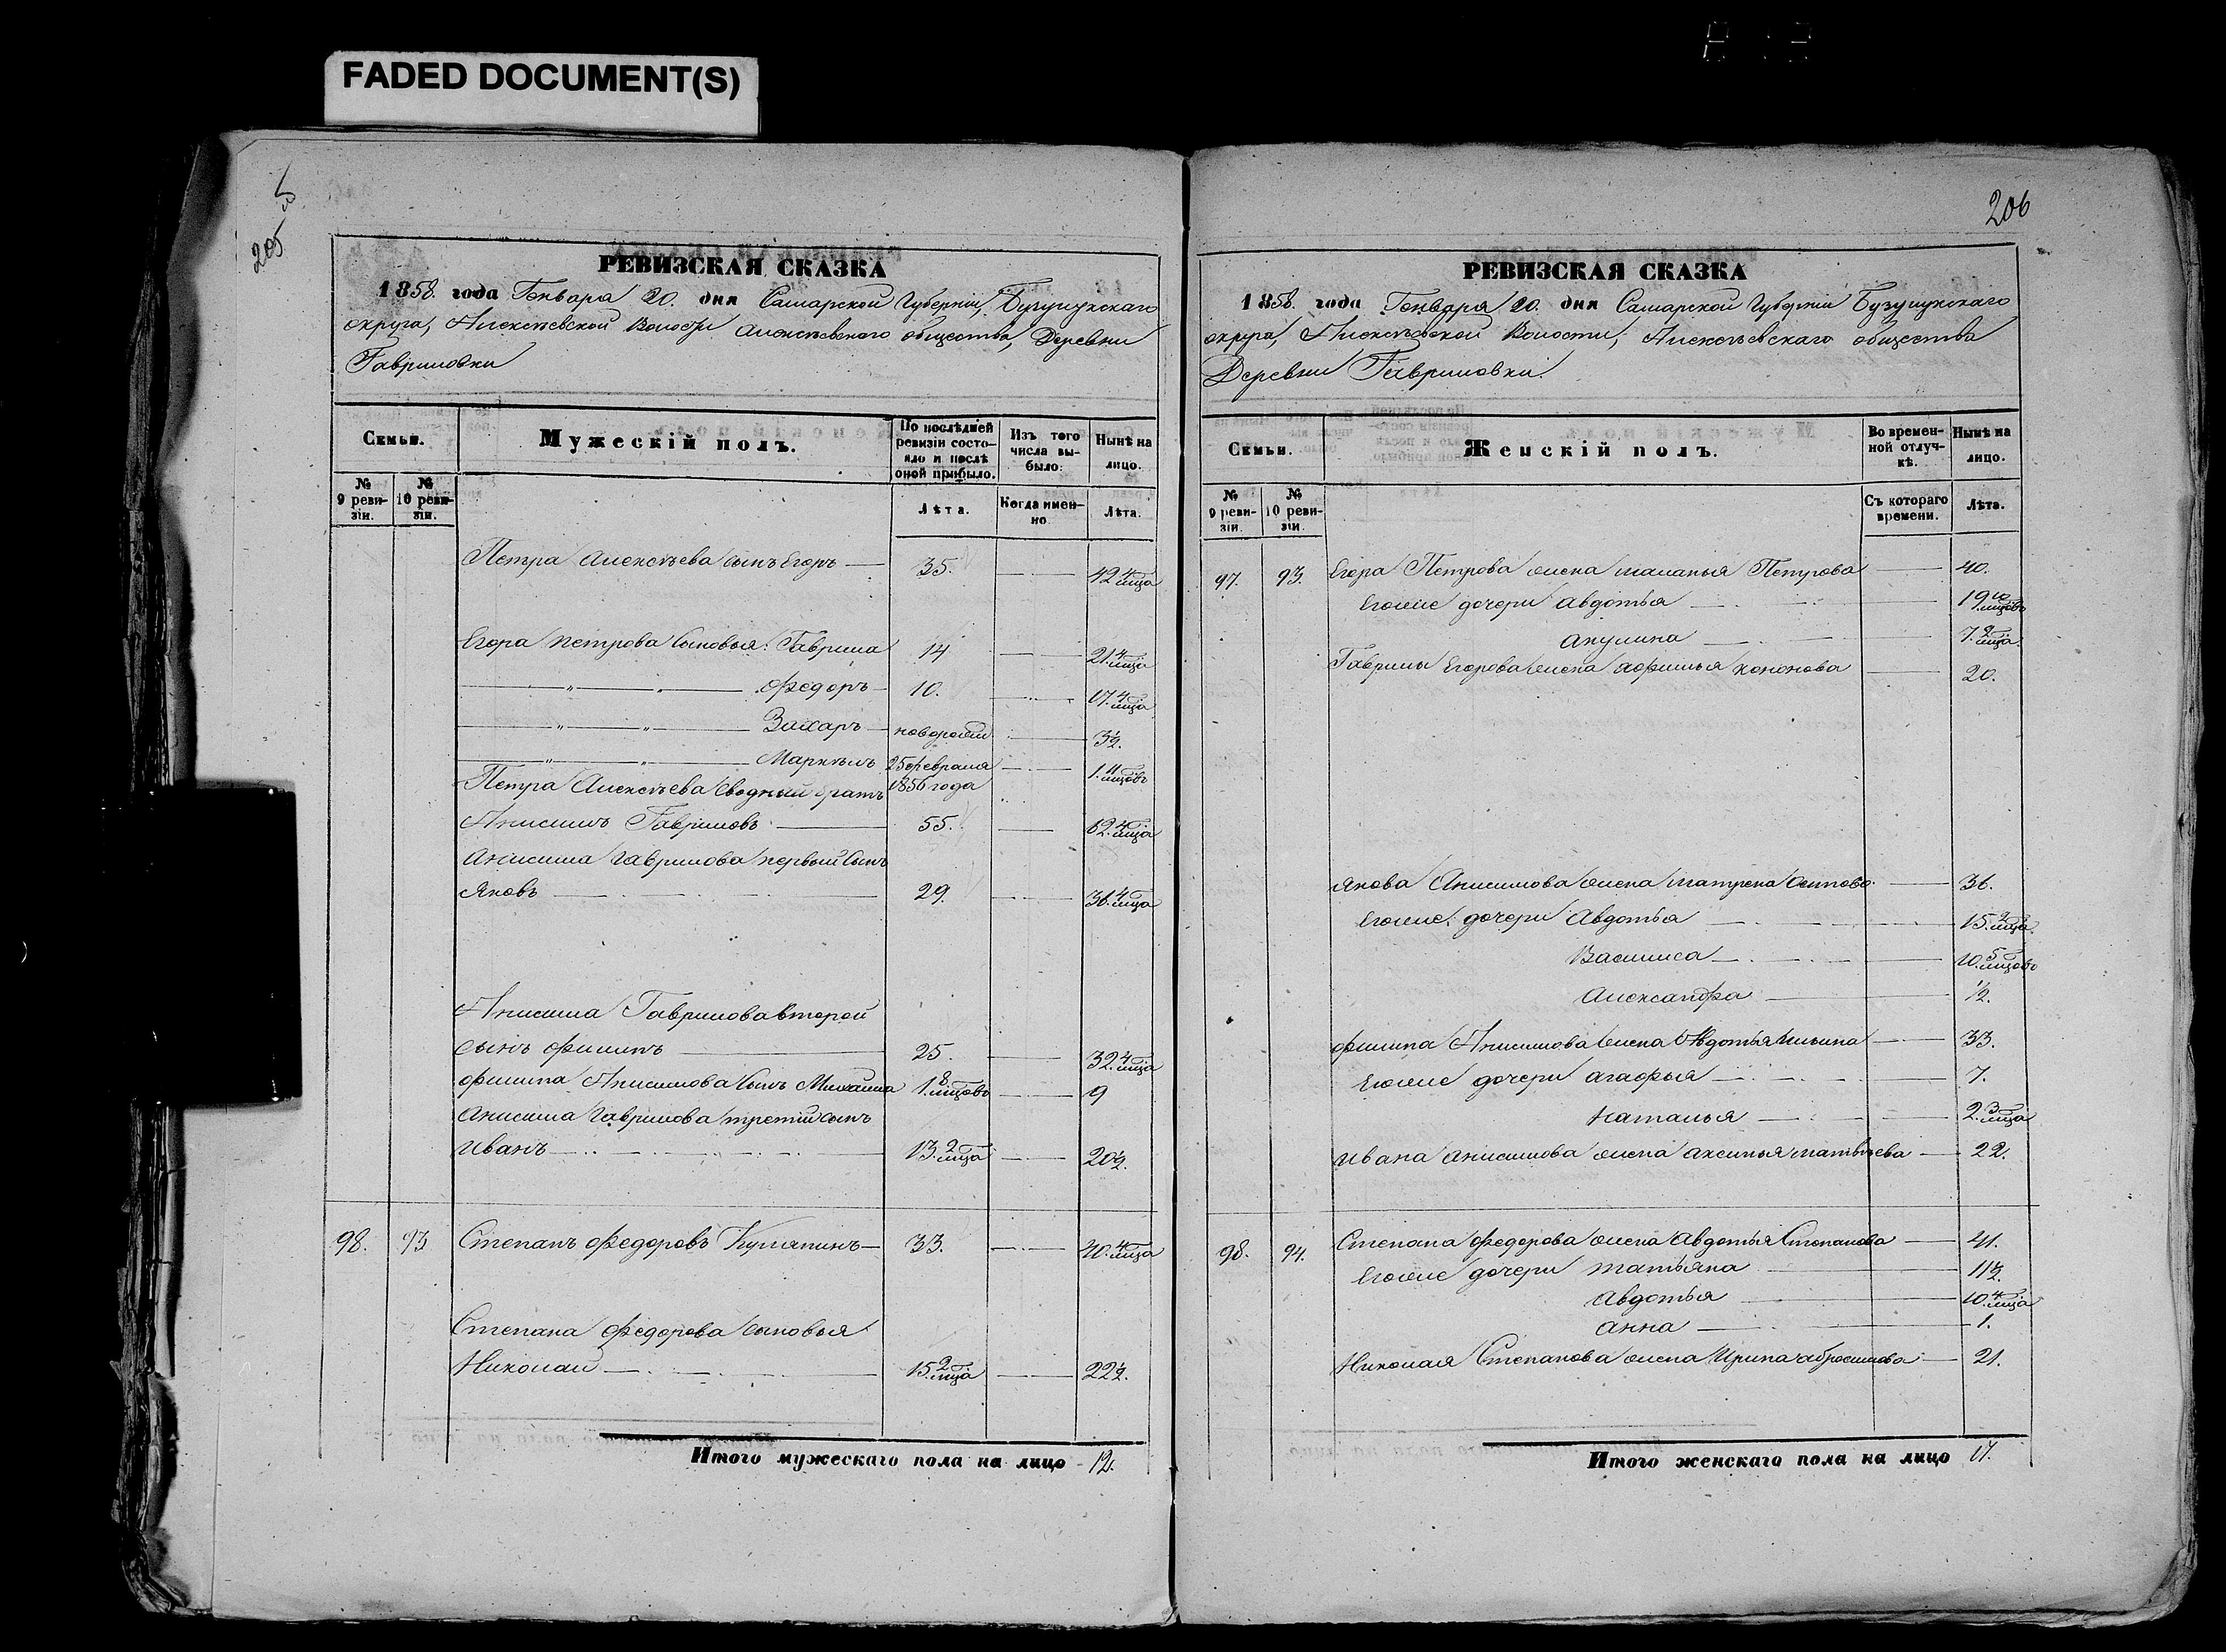 FADED DOCUMENT(S)
205
РЕВИЗСКАЯ СКАЗКА
1858. года Генваря 20. дня Самарской Губерніи, Бузулукскаго
округа, Алексѣевской Волости Алексѣевскаго общества, Деревни
Гавриловки
Семьи.
Мужескій полъ.
По послѣдней ревизіи состояло и послѣ оной прибыло.
Изъ того числа выбыло:
Нынѣ на лицо.
№ 9 ревизіи.
№ 10 ревизіи.
Лѣта.
Когда именно.
Лѣта.
Петра Алексѣева сынъ Егоръ — 35. — 42 4 мца
Егора Петрова сыновья: Гаврила 14 — 21 4 мца
— " — " — Федоръ — 10. — 17. 4 мца
— " — " — Захаръ — новорожд — 3½.
— " — " — Маркелъ 25 февраля — 1. 11 мцовъ
Петра Алексѣева сводный братъ 1856 года
Анисимъ Гавриловъ — 55. — 62. 4 мца
Анисима Гаврилова первый сынъ
Яковъ — 29. — 36. 4 мца
Анисима Гаврилова второй
сынъ Филипъ — 25. — 32. 4 мца
Филипа Анисимова сынъ Михаила 1. 8 мцовъ — 9
Анисима Гаврилова третий сынъ
Иванъ — 13. 2 мца — 20½.
98. 93 Степанъ Федоровъ — 33. — 40. 4 мца
Степана Федорова сыновья
Николай — 15. 2 мца — 22½.
Итого мужескаго пола на лицо 12.
206
РЕВИЗСКАЯ СКАЗКА
1858. года Генваря 20. дня Самарской Губерніи Бузулукскаго
округа, Алексѣевской Волости, Алексѣевскаго общества
Деревни Гавриловки.
Семьи.
Женскій полъ.
Во временной отлучкѣ.
Нынѣ на лицо.
№ 9 ревизіи.
№ 10 ревизіи.
Съ котораго времени.
Лѣта.
97. 93. Егора Петрова жена Маланья Петрова — 40.
Егоже дочери Авдотья — 19 10 мцовъ
Акулина — 7. 2 мца.
Гаврилы Егорова жена Афимья Кононова — 20.
Якова Анисимова жена Матрена Осипова — 36.
Егоже дочери Авдотья — 15. 2 мца.
Василиса — 10. 5 мцовъ
Александра — ½.
Филипа Анисимова жена Авдотья Ильина — 33.
Егоже дочери Агафья — 7.
Наталья — 2. 3 мца
Ивана Анисимова жена Аксинья Матвѣева — 22.
98. 94. Степана Федорова жена Авдотья Степанова — 41.
Егоже дочери Татьяна — 11½.
Авдотья — 10. 4 мца
Анна — 1.
Николая Степанова жена Ирина Абросимова — 21.
Итого женскаго пола на лицо 17.